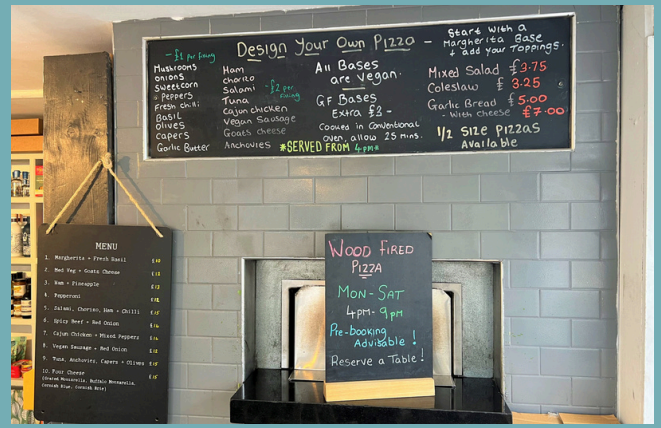 Design Your Own Pizza -
Start with a
Margherita Base
+ add your Toppings.
- £1 per fixing
Mushrooms
onions
Sweetcorn
Peppers
Fresh chilli
Basil
olives
capers
Garlic Butter
Ham
chorizo
Salami
Tuna
Cajun chicken
Vegan Sausage
Goats cheese
Anchovies
- £2 per
fixing
All Bases
are Vegan.
GF Bases
Extra £3 -
Cooked in Conventional
oven, allow 25 mins.
*SERVED FROM 4pm*
Mixed Salad £3.75
Coleslaw £3.25
Garlic Bread £5.00
- With cheese £7.00
1/2 Size Pizzas
Available
MENU
1. Margherita + Fresh Basil
2. Med Veg + Goats Cheese
3. Ham + Pineapple
4. Pepperoni
5. Salami, Chorizo, Ham + Chilli
6. Spicy Beef + Red Onion
7. Cajun Chicken + Mixed Peppers
8. Vegan Sausage + Red Onion
9. Tuna, Anchovies, Capers + Olives
10. Four Cheese
(Grated Mozzarella, Buffalo Mozzarella,
Cornish Blue, Cornish Brie)
Wood Fired
Pizza
Mon - Sat
4pm - 9pm
Pre-booking
Advisable!
Reserve a Table!